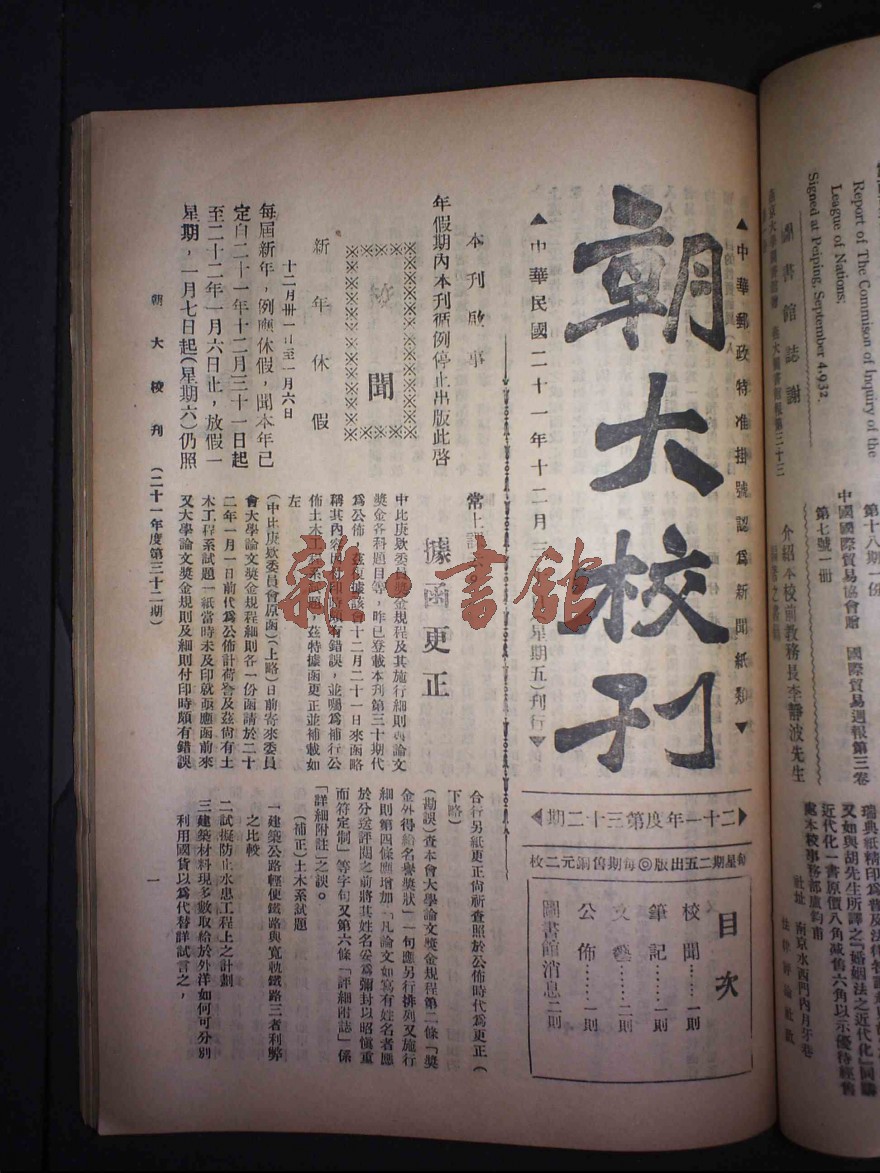 ▲中華郵政特准掛號認爲新聞紙類▼
朝大校刊
▲中華民國二十一年十二月三
星期五)刊行▼
二十一年度第三十二期
每星期二五出版◎每期售銅元二枚
目次
校聞……一則
筆記……一則
文藝……二則
公佈……一則
圖書館消息二則
本刊啟事
年假期內本刊循例停止出版此啓
校聞
十二月卅一日至一月六日
新年休假
每屆新年，例應休假，聞本年已
定自二十一年十二月三十一日起
至二十二年一月六日止，放假一
星期，一月七日起(星期六)仍照
常上課
據函更正
中比庚欵委員
獎金規程及其施行細則與論文
獎金各科題目等，昨已登載本刊第三十期代
爲公佈，茲復據該會十二月二十一日來函略
稱其內容因付印時頗有錯誤，並囑爲補行公
佈土木工程系試題，茲特據函更正並補載如
左
(中比庚欵委員會原函)(上略)日前寄來委員
會大學論文獎金規程細則各一份函請於二十
二年一月一日前代爲公佈計荷詧及茲尙有土
木工程系試題一紙當時未及印就亟應函前來
又大學論文獎金規則及細則付印時頗有錯誤
合行另紙更正尙祈查照於公佈時代爲更正(
下略)
(勘誤)查本會大學論文獎金規程第二條「獎
金外得給名譽獎狀」一句應另行排列又施行
細則第四條應增加「凡論文如寫有姓名者應
於分送評閱之前將其姓名妥爲彌封以昭愼重
而符定制」等字句又第六條「評細附誌」係
「詳細附註」之誤。
(補正)土木系試題
一建築公路輕便鐵路與寬軌鐵路三者利弊
之比較
二試擬防止水患工程上之計劃
三建築材料現多數取給於外洋如何可分別
利用國貨以爲代替詳試言之，
朝大校刊　(二十一年度第三十二期)
一
雜·書館
Report of The Commison of Inquiry of the
League of Nations;
Signed at Peiping, September 4.932.
圖書館誌謝
第十八期一份
中國國際貿易協會贈　國際貿易週報第三卷
第七號一册
介紹本校前教務長李靜波先生
又如與胡先生所譯之『婚姻法之近代化』同購
近代化一書原價八角減售六角以示優待經售
處本校事務部盧鈞甫
社址　南京水西門內月牙巷